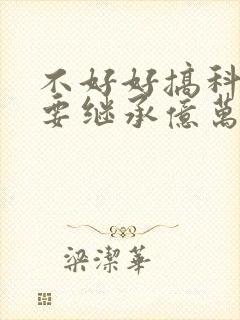 不好好搞科
要继承億萬
梁潔華